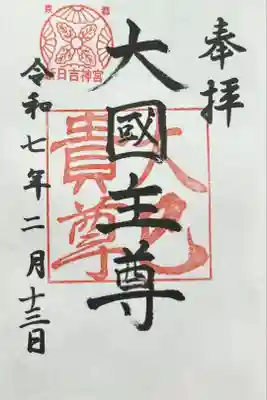 奉拝
大國主尊
令和七年二月十三日
京都
日吉神宮
大己
貴尊